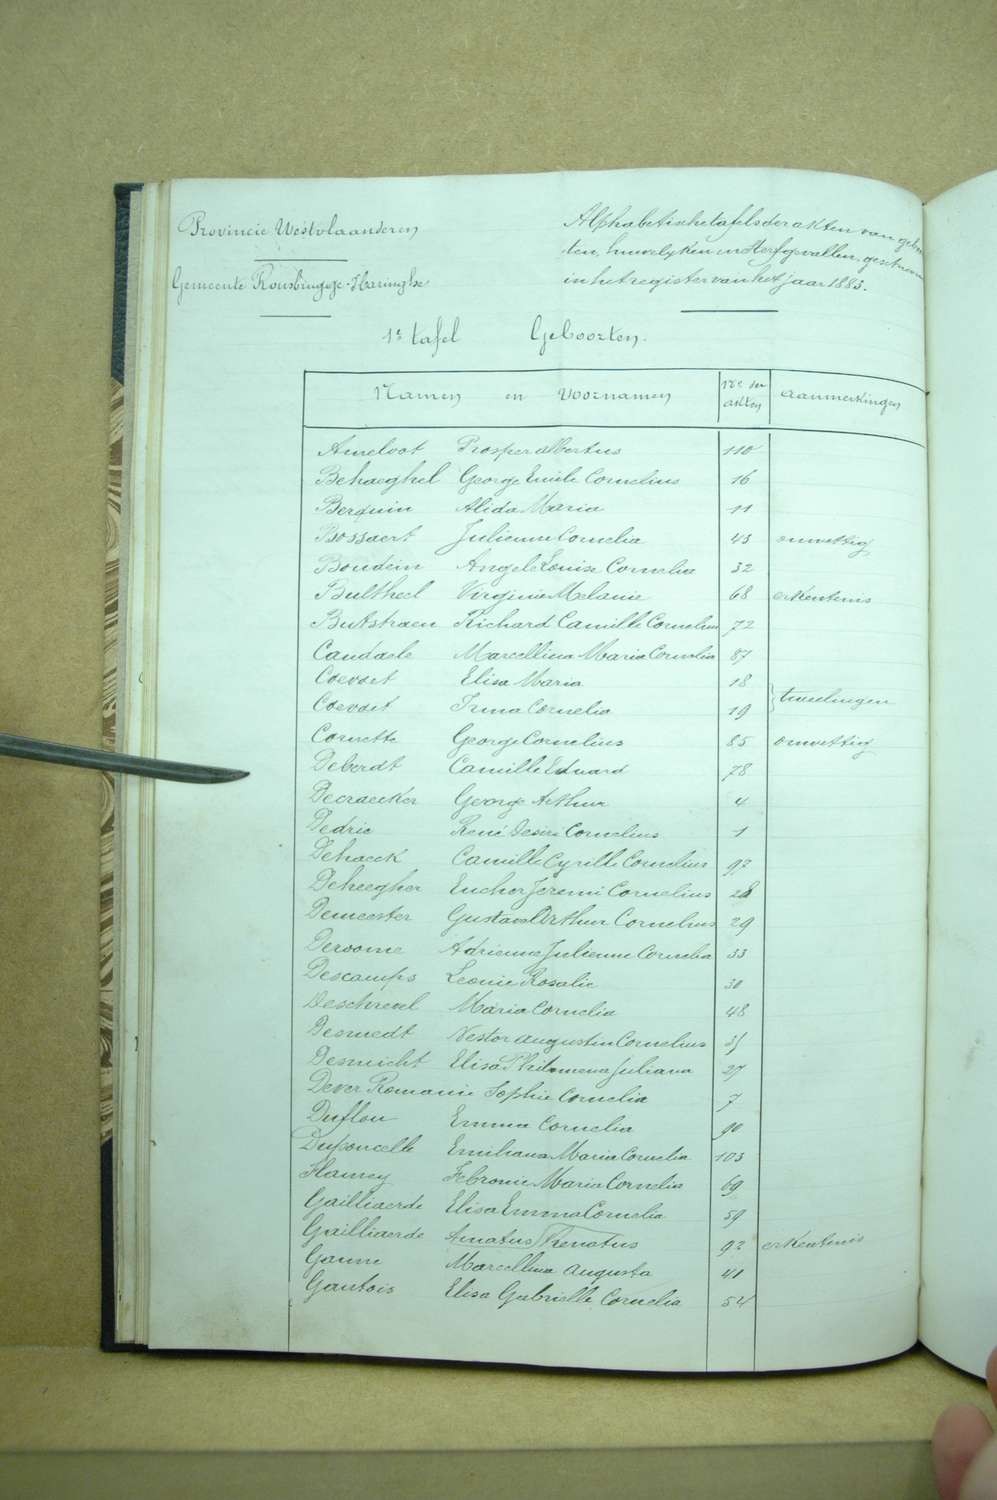 Provincie Westvlaanderen
Gemeente Rousbrugge-Haringhe
Alphabetische tafels der akten van geboor
ten, huwelyken en sterfgevallen, geschreven
in het register van het jaar 1883.
1e tafel Geboorten.
Namen en Voornamen Nrs der akten aanmerkingen
Ameloot Prosper Albertus 110
Behaeghel George Emile Cornelius 16
Berquin Alida Maria 11
Bossaert Julienne Cornelia 43 onwettig
Boudein Angele Louise Cornelia 32
Bultheel Virginie Melanie 68 erkentenis
Butstraen Richard Camille Cornelius 72
Candaele Marcellina Maria Cornelia 87
Coevoet Elisa Maria 18
Coevoet Irma Cornelia 19 tweelingen
Cornette George Cornelius 85 onwettig
Deberdt Camille Eduard 78
Decraecker George Arthur 4
Dedrie René Desiré Cornelius 1
Dehaeck Camille Cyrille Cornelius 92
Deheegher Jeremi Cornelius 28
Demeester Gustave Arthur Cornelius 29
Deroome Adrienne Julienne Cornelia 33
Descamps Leonie Rosalie 30
Deschrevel Maria Cornelia 48
Desmedt Nestor Augustin Cornelius
Desmicht Elisa Philomena Juliana 27
Dever Romanie Sophie Cornelia 7
Duflou Emma Cornelia 90
Duponcelle Emiliana Maria Cornelia 103
Flamey Febronie Maria Cornelia 69
Gailliaerde Elisa Emma Cornelia 59
Gailliaerde Amatus Renatus 92 erkentenis
Ganne Marcellina Augusta 41
Gantois Elisa Gabrielle Cornelia 54